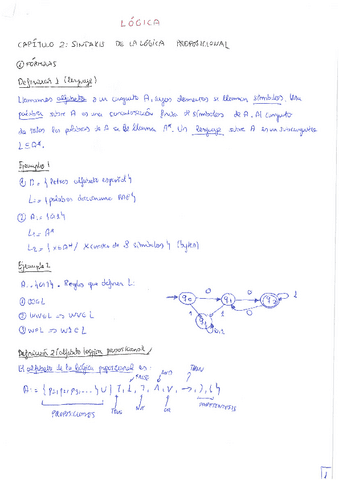 LÓGICA
CAPÍTULO 2: SINTAXIS DE LA LÓGICA PROPOSICIONAL
① FÓRMULAS
Definición 1 (lenguaje)
Llamamos alfabeto a un conjunto A, cuyos elementos se llaman símbolos. Una
palabra sobre A es una concatenación finita de símbolos de A. Al conjunto
de todas las palabras de A se le llama A*. Un lenguaje sobre A es un subconjunto
L⊆A*.
Ejemplo 1
① A = {letras alfabeto español}
L = {palabras diccionario}
② A = {0,1}
L₁ = A*
L₂ = {x∈A* / x consta de 8 símbolos} (bytes)
Ejemplo 2
A = {0,1}. Reglas que definen L:
①
②
③
q₀ 0 q₁ 0 q₂ 1
1 1 0
q₃ 0,1
Definición 2 (alfabeto lógica proposicional)
El alfabeto de la lógica proposicional es:
AND THEN
FALSE
A = {p₁, p₂, p₃, ...} ∪ {⊤, ⊥, ¬, ∧, ∨, →, ), (}
PROPOSICIONES TRUE NOT OR PARENTESIS
1